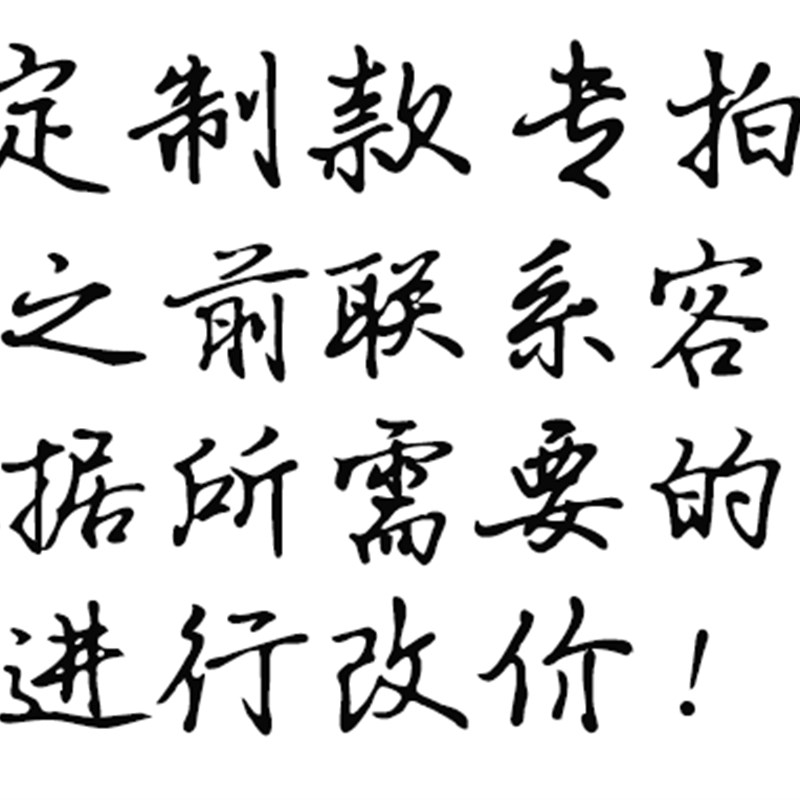 定制款专拍
之前联系客
据所需要的
进行改价！